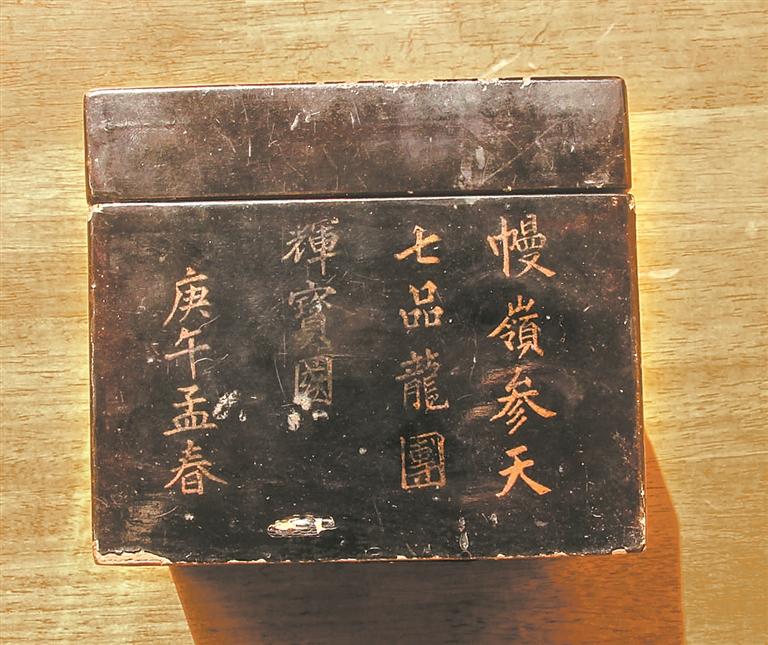 幔嶺参天
七品龍團
輝寳圖
庚午孟春